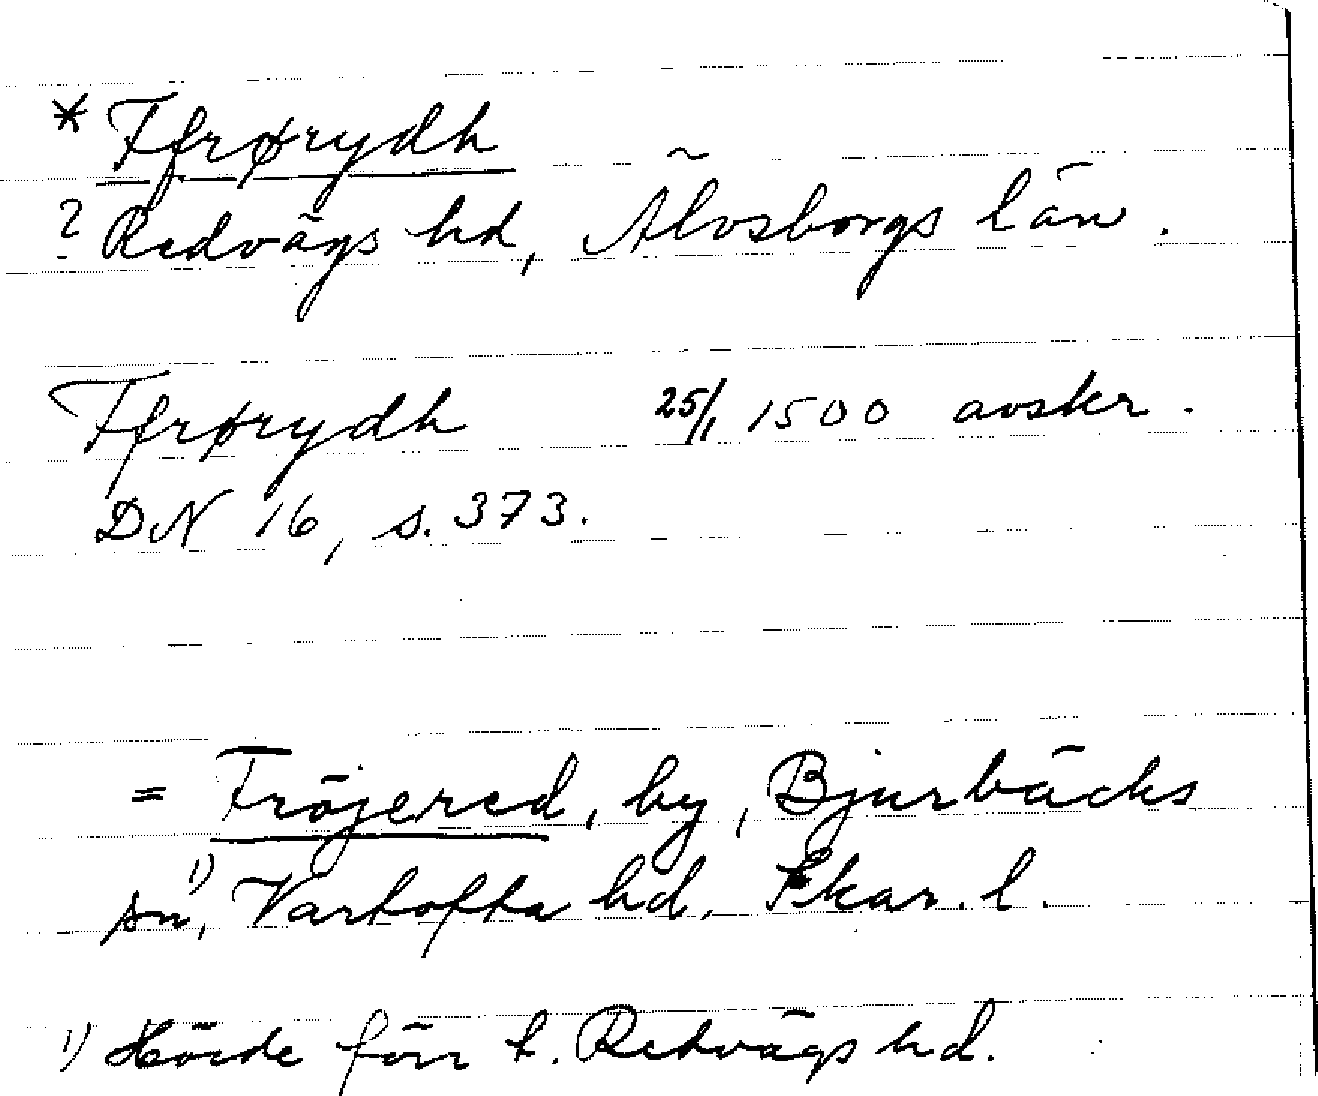 * Ffrørydh
? Redvägs hd, Älvsborgs län.
Ffrørydh 25/1 1500 avskr.
DN 16, s. 373.
= Fröjered, by, Bjurbäcks
sn, 1) Vartofta hd, Skar. l.
1) Hörde förr t. Redvägs hd.